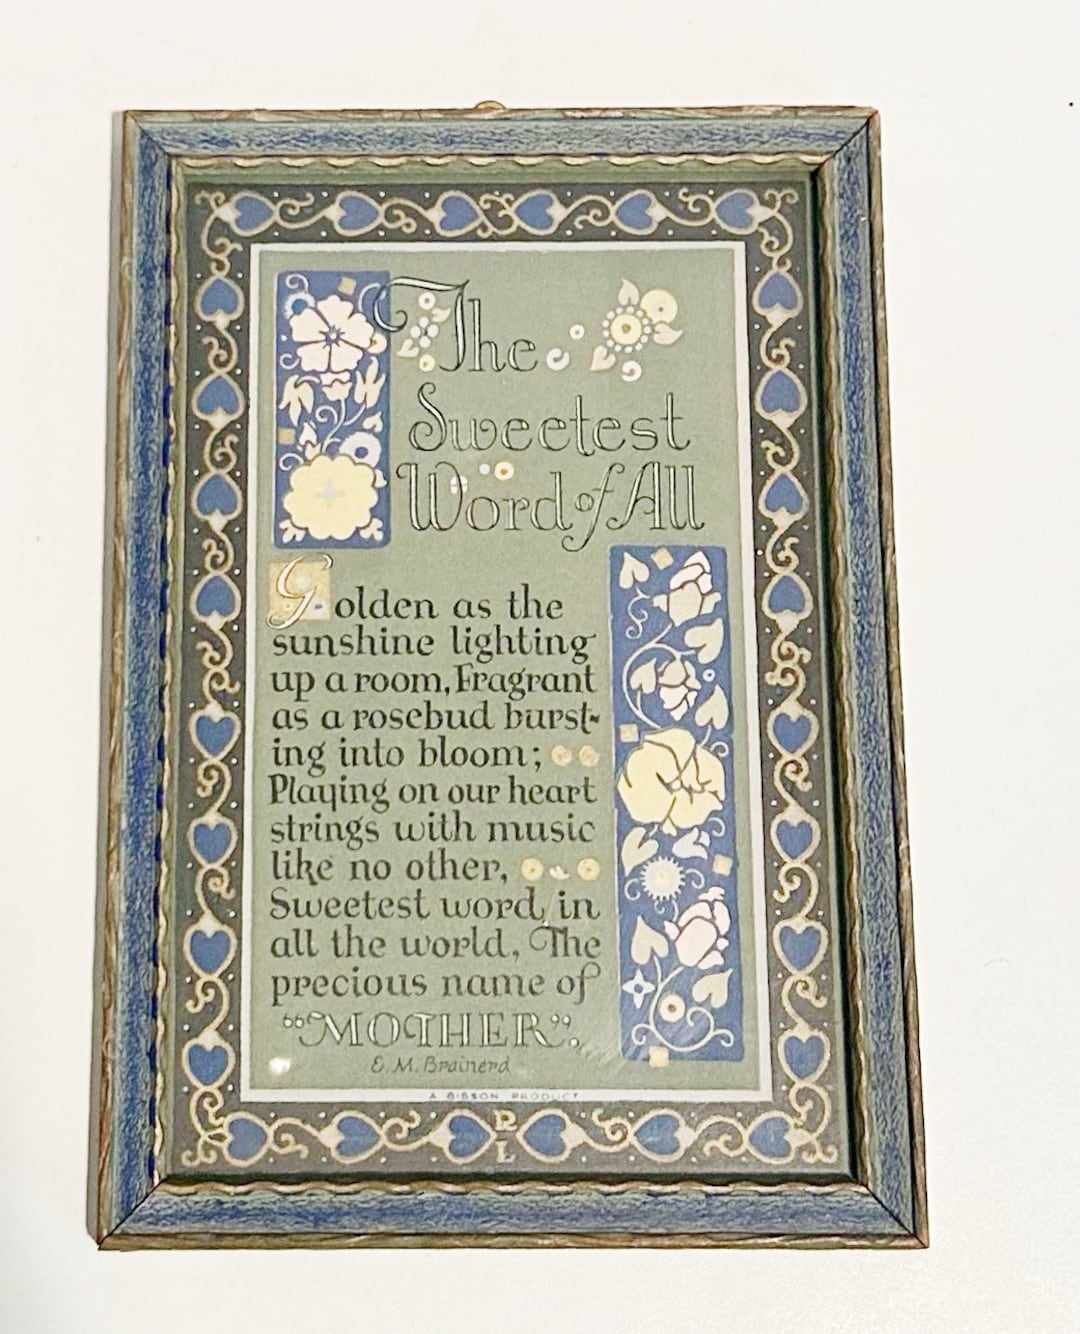 The
Sweetest
Word of All
Golden as the
sunshine lighting
up a room, Fragrant
as a rosebud burst-
ing into bloom;
Playing on our heart
strings with music
like no other,
Sweetest word, in
all the world, The
precious name of
"MOTHER".
E. M. Brainerd
A GIBSON PRODUCT
R
L